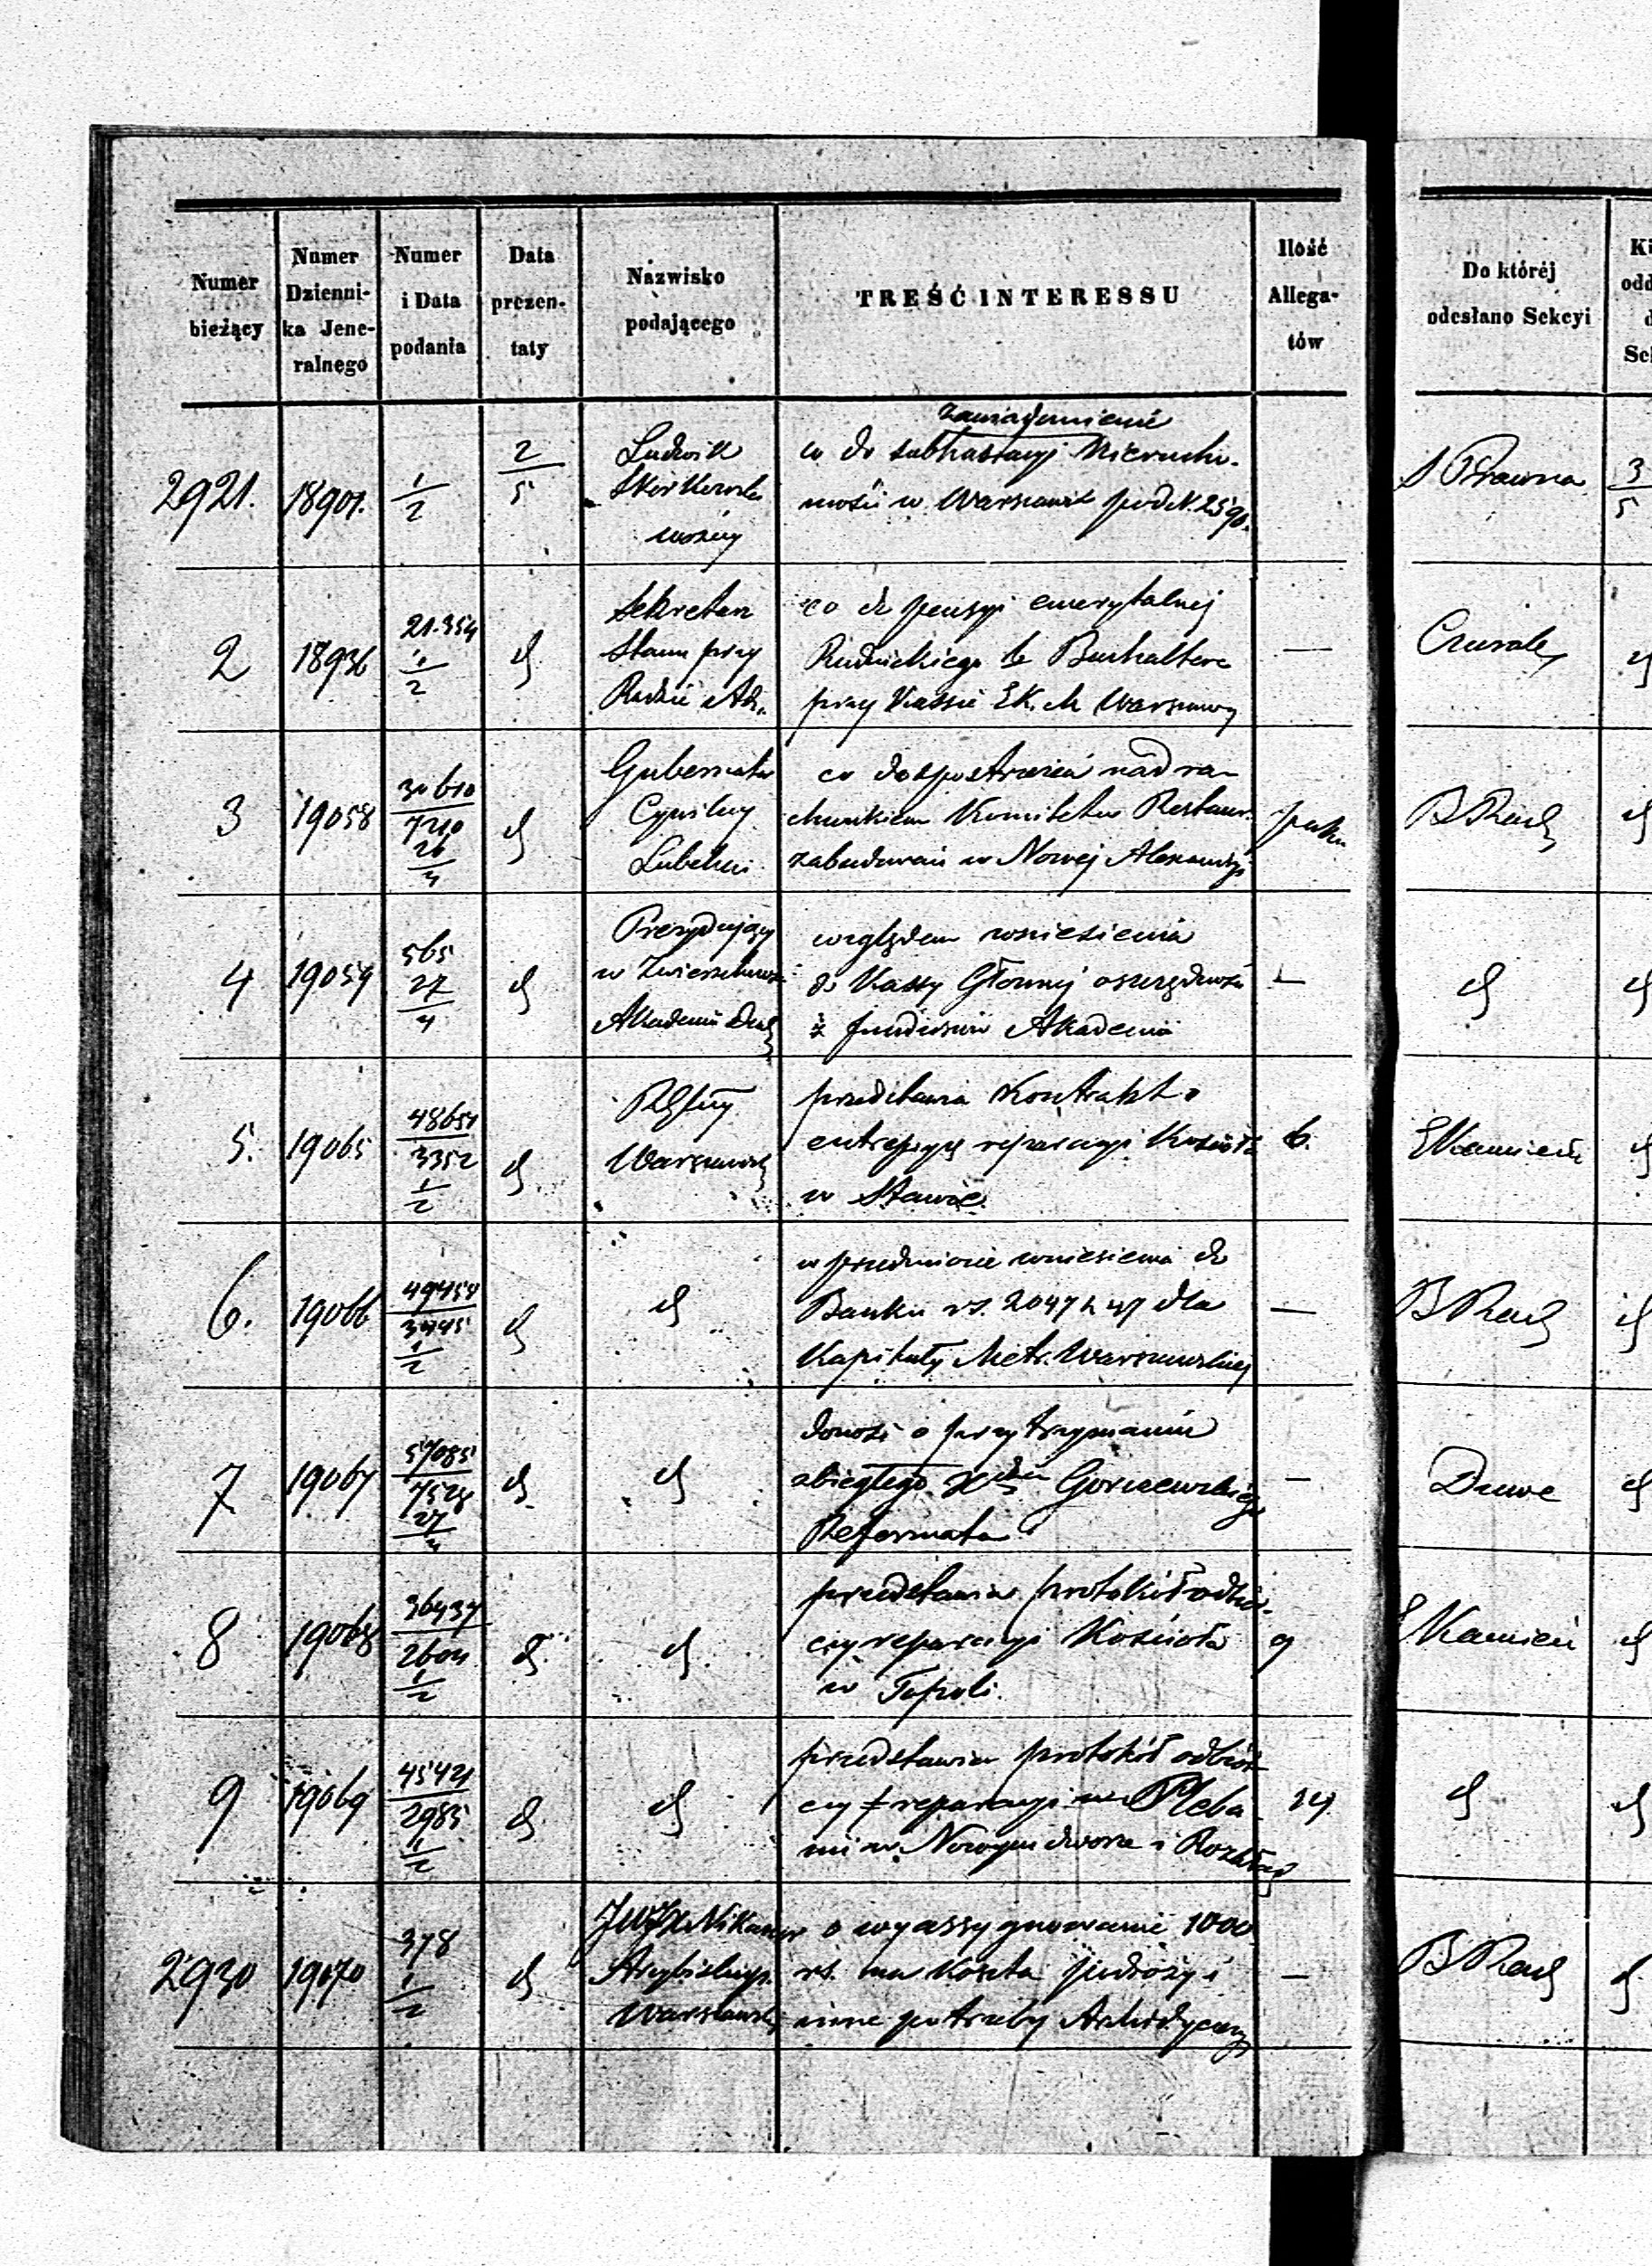 Numer bieżący
Numer Dzienni- ka Jene- ralnego
Numer i Data podania
Data prezen- taty
Nazwisko podającego
TREŚĆ INTERESSU
Ilość Allega- tów
Do któréj odesłano Sekcyi
2921. 18901. 1/2 2/5
Ludwik
woźny
zawiadomienie
co do subhastacyi Nierucho-
mości w Warszawie pod N. 2590.
3/5
2 18936 21.354 1/2 d
Sekretarz
Stanu przy
Radzie Adm.
co do pensyi emerytalnej
Rudnickiego b. Buchaltera
przy Kassie Warszawy
—
3 19058 30610/7210 20/4 d
Gubernator
Cywilny
Lubelski
co dospostrzeżeń nad ra-
chunkiem Komitetu Restaur.
zabudowań w Nowej Alexandryi
B Rach
4 19059 565 27/4 d
Prezydujący
w Zwierzchności
Akademii Duch
względem wniesienia
do Kassy Głównej oszczędności
z funduszów Akademii
—
d
5. 19065 48651/3352 1/2 d
Rząd Gub
Warszawski
przedstawia Kontrakt o
entrepryzę reparacyi Kościoła
w Stawie
6.
6. 19066 49458/3445 1/2 d
d
w przedmiocie wniesienia do
Banku rs. 2047 k 47 dla
Kapituły Metr. Warszawskiej
—
B Rach
7 19067 57085/7528 27/4 d
d
donosi o przytrzymaniu
zbiegłego Xdza Gorzewskiego
Reformata
—
8 19068 36437/2604 1/2 d
d
przedstawia protokół odbior-
czy reparacyi Kościoła
w Topoli.
9
S Kamień
9 19069 45421/2985 1/2 d
d
przedstawia protokół odbior-
czy reparacyi Pleba
nii w Nowymdworze i
14
d
2930 19070 378 1/2 d
JWJX Nikanor
Arcybiskup
Warszawski
o wyassygnowanie 1000
rs. na koszta podróży i
inne potrzeby Archidyecezyi
—
B Rach
d